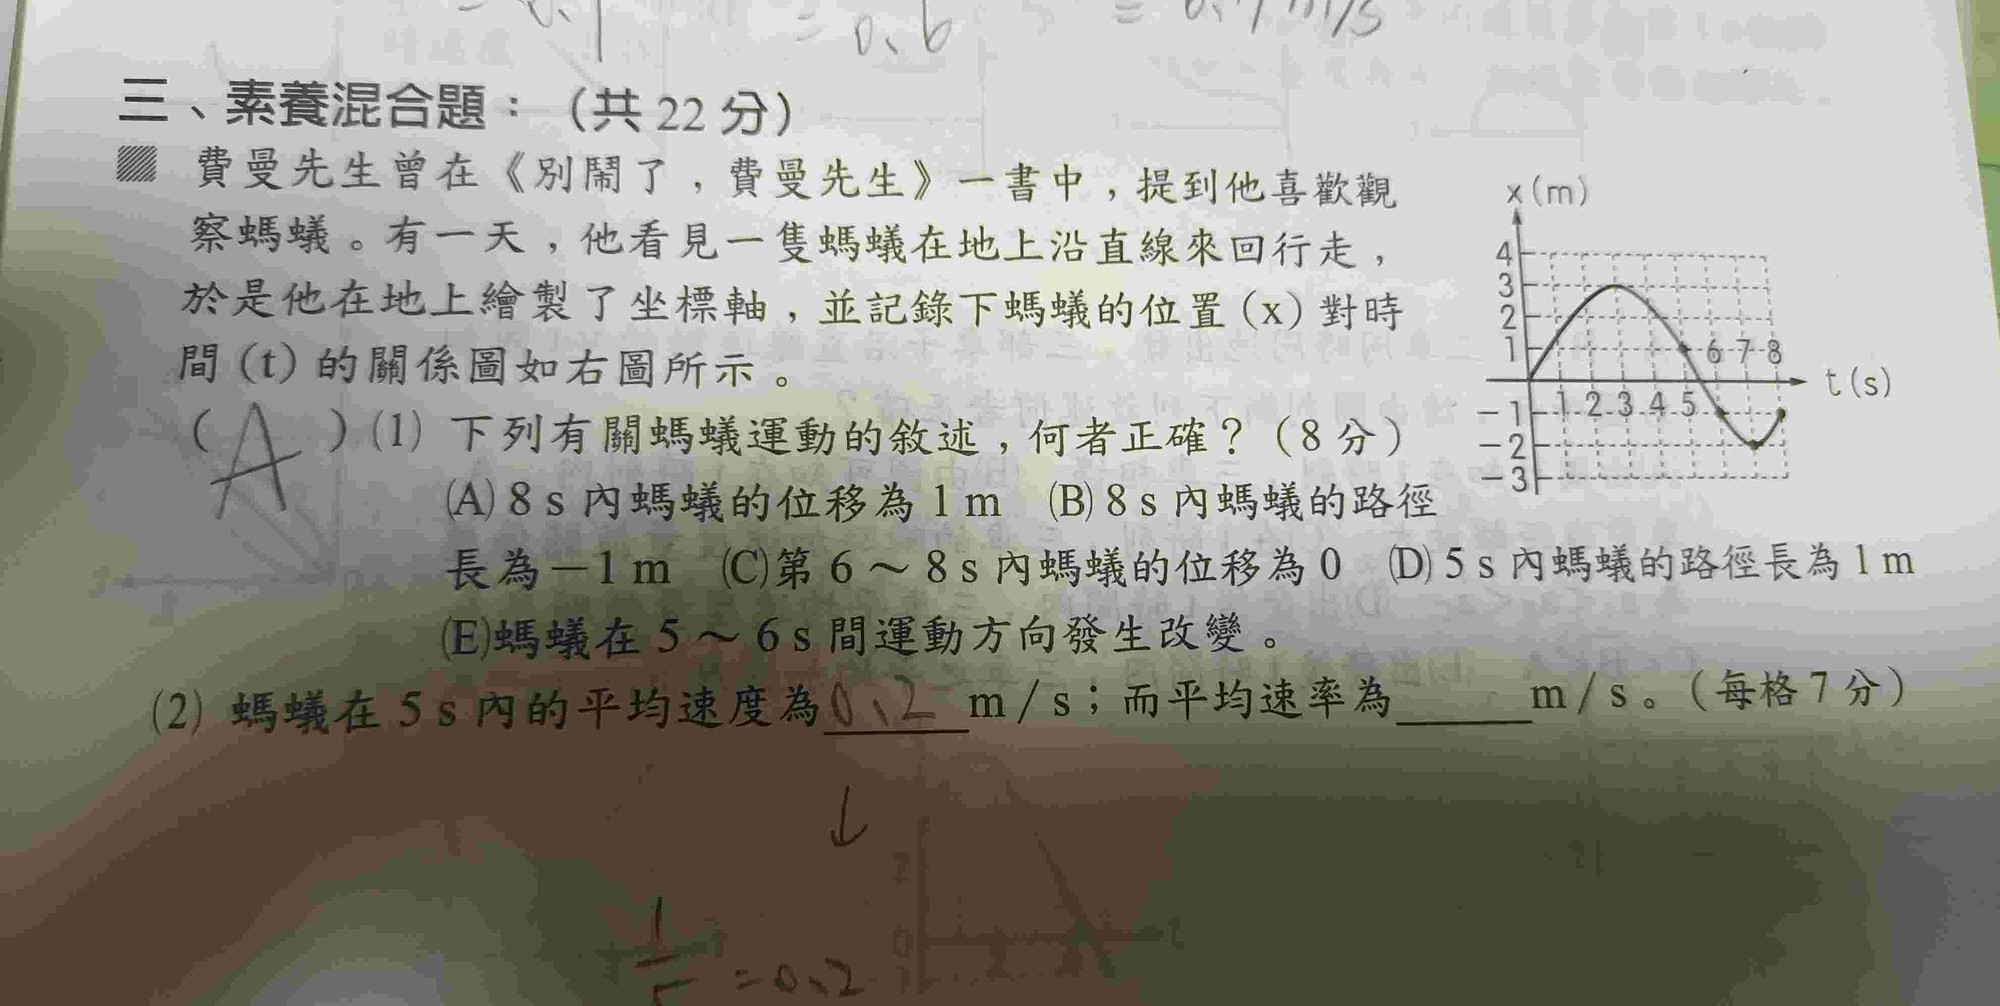 = 0.6
三、素養混合題：（共 22 分）
費曼先生曾在《別鬧了，費曼先生》一書中，提到他喜歡觀
察螞蟻。有一天，他看見一隻螞蟻在地上沿直線來回行走，
於是他在地上繪製了坐標軸，並記錄下螞蟻的位置(x)對時
間(t)的關係圖如右圖所示。
x(m)
4
3
2
1
6 7 8
t(s)
-1 1 2 3 4 5
-2
-3
（A）(1) 下列有關螞蟻運動的敘述，何者正確？（8 分）
(A) 8 s 內螞蟻的位移為 1 m (B) 8 s 內螞蟻的路徑
長為－1 m (C)第 6～8 s 內螞蟻的位移為 0 (D) 5 s 內螞蟻的路徑長為 1 m
(E)螞蟻在 5～6 s 間運動方向發生改變。
(2) 螞蟻在 5 s 內的平均速度為0.2 m / s；而平均速率為______m / s。（每格 7 分）
↓
1/5 = 0.2